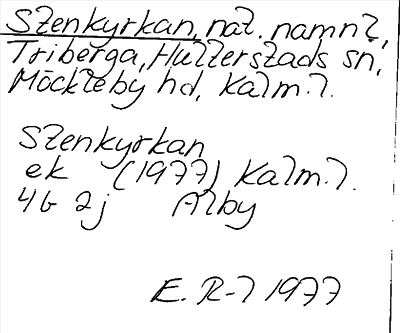 Stenkyrkan, nat. namn?,
Triberga, Hulterstads sn,
Möckleby hd, Kalm.l.
Stenkyrkan
ek (1977) Kalm.l.
4b 2j Alby
E. R-l 1977